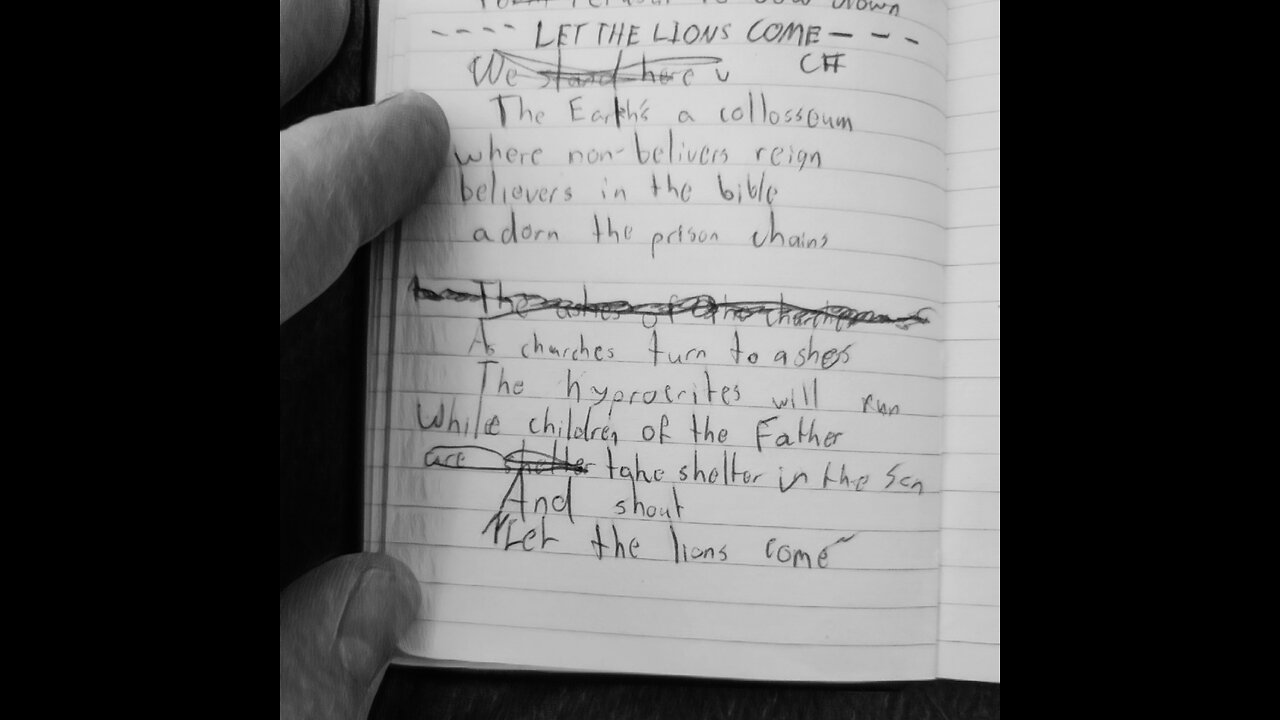 to bow down
---- LET THE LIONS COME - - -
We stand here C#
The Earth's a collosseum
where non-belivers reign
believers in the bible
adorn the prison chains
The ashes of the churches
As churches turn to ashes
The hyprocrites will run
While children of the Father
are shelter take shelter in the Son
And shout
"Let the lions come"